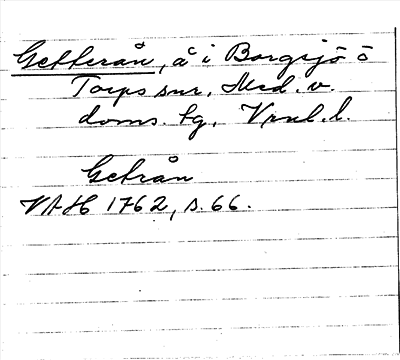 Getterån, å i Borgsjö o
Torps snr, Med. v.
doms. sg, Vnl. l.
Getrån
VAH 1762, s. 66.